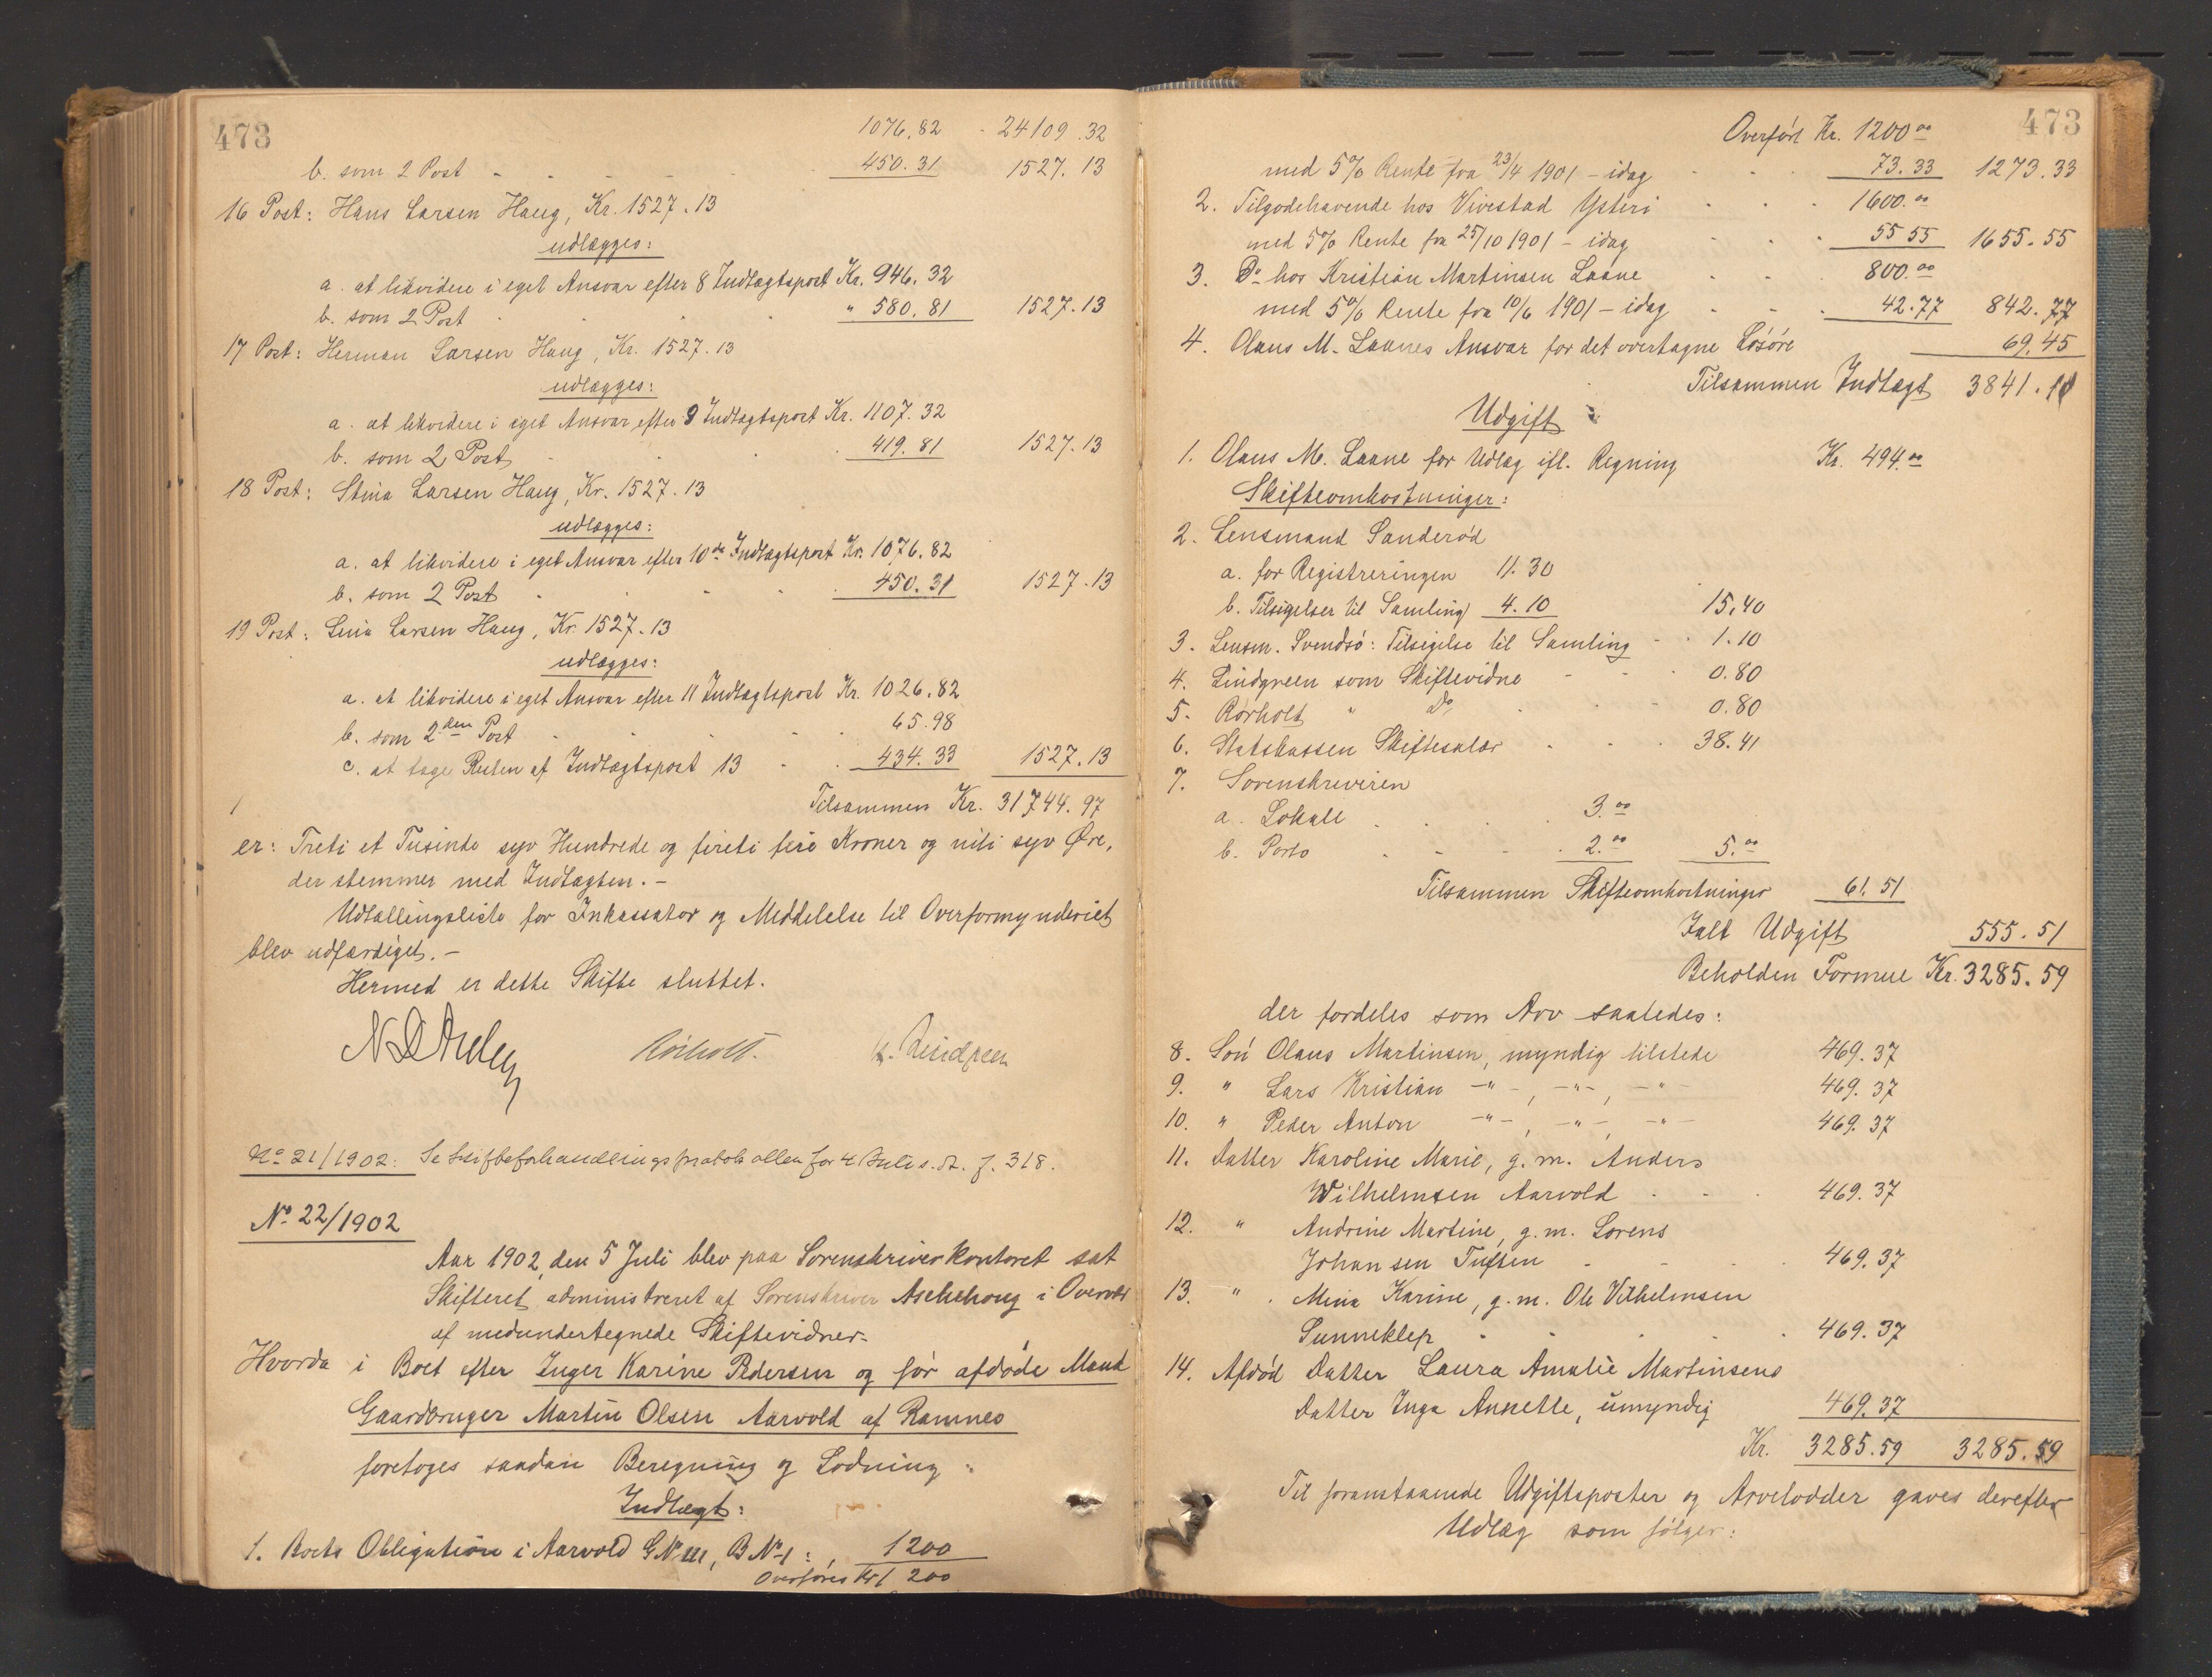 473
1076.82 - 24109.32
b. som 2 Post - - - - 450.31 1527.13
16 Post: Hans Larsen Haug, Kr. 1527.13
udlægges:
a. at likvidere i eget Ansvar efter 8 Indtægtspost Kr. 946.32
b. som 2 Post . . . " 580.81 1527.13
17 Post: Herman Larsen Haug, Kr. 1527.13
udlægges:
a. at likvidere i eget Ansvar efter 9 Indtægtspost Kr. 1107.32
b. som 2 Post - . . 419.81 1527.13
18 Post: Stina Larsen Haug, Kr. 1527.13
udlægges:
a. at likvidere i eget Ansvar efter 10de Indtægtspost Kr. 1076.82
b. som 2 Post - . . 450.31 1527.13
19 Post: Lina Larsen Haug, Kr. 1527.13
udlægges:
a. at likvidere i eget Ansvar efter 11 Indtægtspost Kr. 1026.82
b. som 2den Post . . . 65.98
c. at tage Resten af Indtægtspost 13 - . 434.33 1527.13
Tilsammen Kr. 31744.97
er: Treti et Tusinde syv Hundrede og fireti fire Kroner og niti syv Øre,
der stemmer med Indtægten. -
Udtællingsliste for Inkassator og Meddelelse til Overformynderiet
blev udfærdiget. -
Hermed er dette Skifte sluttet.
Rørholt. K. Lindgreen
No 21/1902: Se Skifteforhandlingsprotokollen for 4 Juli s. A. f. 318.
No 22/1902
Aar 1902 den 5 Juli blev paa Sorenskriverkontoret sat
Skifteret administreret af Sorenskriver Aschehoug i Overvær
af medundertegnede Skiftevidner.
Hvorda i Boet efter Inger Karine Pedersen og før afdøde Mand
Gaardbruger Martin Olsen Aarvold af Ramnes
foretoges saadan Beregning og Lodning:
Indtægt:
1. Boets Obligation i Aarvold G No 111, B No 1: , 1200
Overføres Kr 1200
473
Overført Kr. 1200.00
med 5% Rente fra 23/4 1901 - idag . . . 73.33 1273.33
2. Tilgodehavende hos Vivestad Ysteri . . . 1600.00
med 5% Rente fra 25/10 1901 - idag . . . 55 55 1655.55
3. Do hos Kristian Martinsen Laane . . 800.00
med 5% Rente fra 10/6 1901 - idag . . . 42.77 842.77
4. Olaus M. Laanes Ansvar for det overtagne Løsøre 69.45
Tilsammen Indtægt 3841.10
Udgift:
1. Olaus M. Laane for Udlæg ifl. Regning Kr. 494.00
Skifteomkostninger:
2. Lensmand Sanderød
a. for Registreringen 11.30
b. Tilsigelser til Samling 4.10 15.40
3. Lensm. Svendsø: Tilsigelse til Samling - . 1.10
4. Lindgreen som Skiftevidne - - . 0.80
5. Rørholt " Do . . . 0.80
6. Statskassen Skiftesalær . . . 38.41
7. Sorenskriveren
a. Lokale . . . . 3.00
b. Porto . - - . 2.00 5.00
Tilsammen Skifteomkostninger 61.51
Ialt Udgift 555.51
Beholden Formue Kr. 3285.59
der fordeles som Arv saaledes:
8. Søn Olaus Martinsen, myndig tilstede 469.37
9. " Lars Kristian -"-, -"-, -"- 469.37
10. " Peder Anton -"-, -"-, -"- 469.37
11. Datter Karoline Marie, g. m. Anders
Wilhelmsen Aarvold . . . 469.37
12. " Andrine Martine, g. m. Lorens
Johansen Tuften - - . 469.37
13. " Mina Karine, g. m. Ole Vilhelmsen
Sunneklep . . . . 469.37
14. Afdød Datter Laura Amalie Martinsens
Datter Inga Annette, umyndig 469.37
Kr. 3285.59 3285.59
Til foranstaaende Udgiftsposter og Arvelodder gaves derefter
Udlæg som følger: